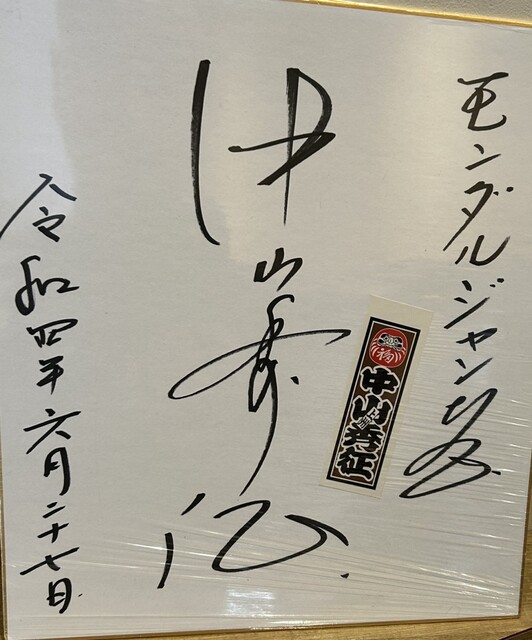 モンダルジャンさん
中山秀征
中山秀征
令和四年六月二十七日